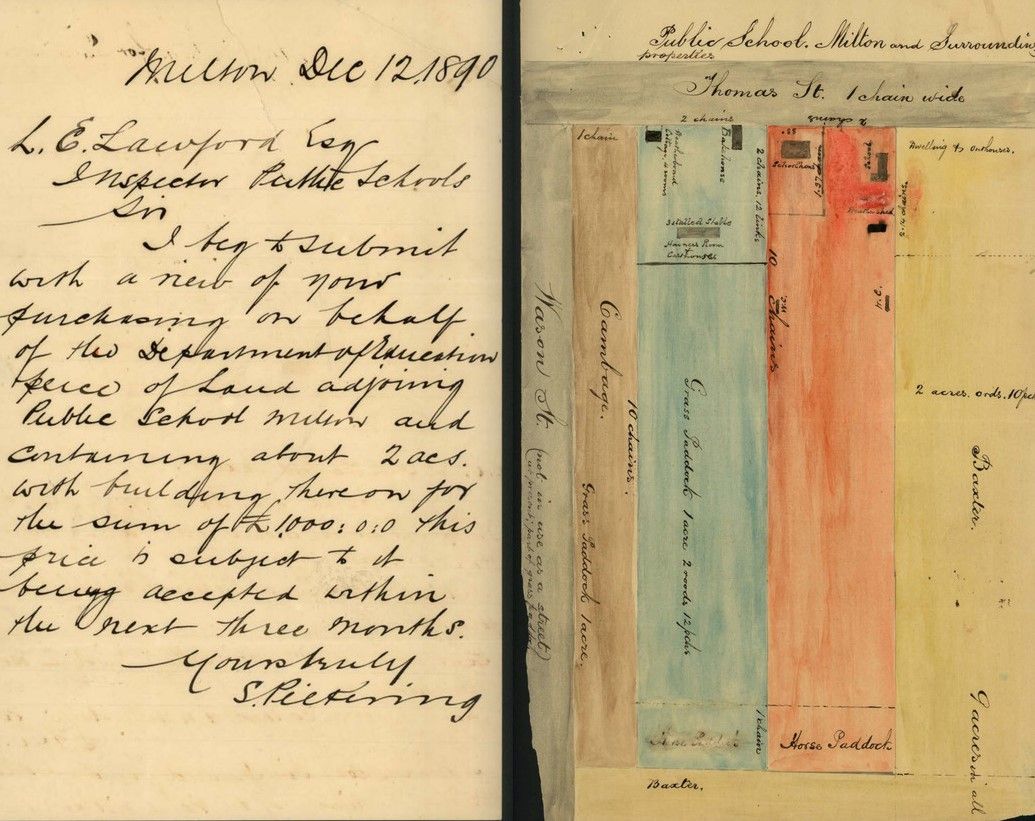 Milton Dec 12, 1890
L. E. Lawford Esq
Inspector Public Schools
Sir
I beg to submit
with a view of your
purchasing on behalf
of the Department of Education
peice of Land adjoining
Public School Milton and
containing about 2 acs.
with building thereon for
the sum of £1,000:0:0 this
price is subject to it
being accepted within
the next three months.
Yours truly
S. Pickering
Public School. Milton and Surrounding
properties
Thomas St. 1 chain wide
2 chains
2 chains
1 chain
Weatherboard
Cottage, 4 rooms
Bakehouse
2 chains, 12 links
3 stalled Stable
Harness Room
Carthouse
School
Weathershed
Dwelling & Outhouses.
Wason St. (not in use as a street)
Cambage.
10 chains.
Grass Paddock 1 acre.
Grass Paddock 1 acre 2 roods 12 pchs
10 chains
W.C.
2 acres. 0rds. 10
Baxter.
9 acres in all
1 chain
Horse Paddock
Baxter.